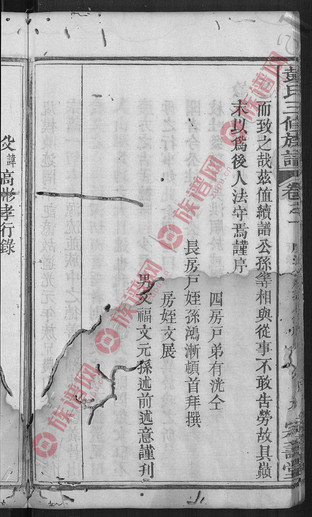 彭氏三修族譜
卷之一
而致之哉茲值續譜公孫等相與從事不敢告勞故具巔
末以為後人法守焉謹序
四房戶弟有洸仝
長房戶姪孫鴻漸頓首拜撰
房姪文展
男文福文元孫述前述意謹刊
父諱高彬孝行錄
族谱网
族谱网
族谱网